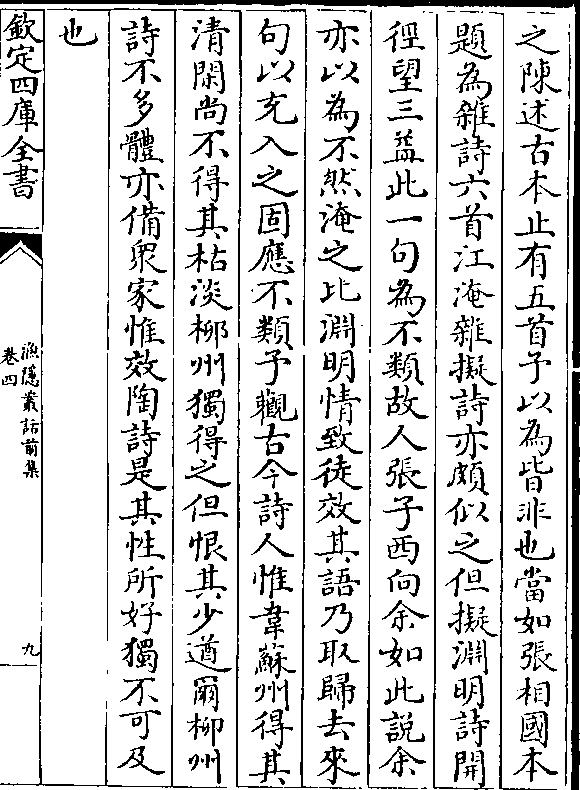 之陳述古本止有五首予以為皆非也當如張相國本
題為雜詩六首江淹雜擬詩亦頗似之但擬淵明詩開
徑望三益此一句為不類故人張子西向余如此說余
亦以為不然淹之比淵明情致徒效其語乃取歸去來
句以充入之固應不類予觀古今詩人惟韋蘇州得其
清閑尚不得其枯淡柳州獨得之但恨其少遒爾柳州
詩不多體亦備衆家惟效陶詩是其性所好獨不可及
也
欽定四庫全書
漁隱叢話前集
卷四
九